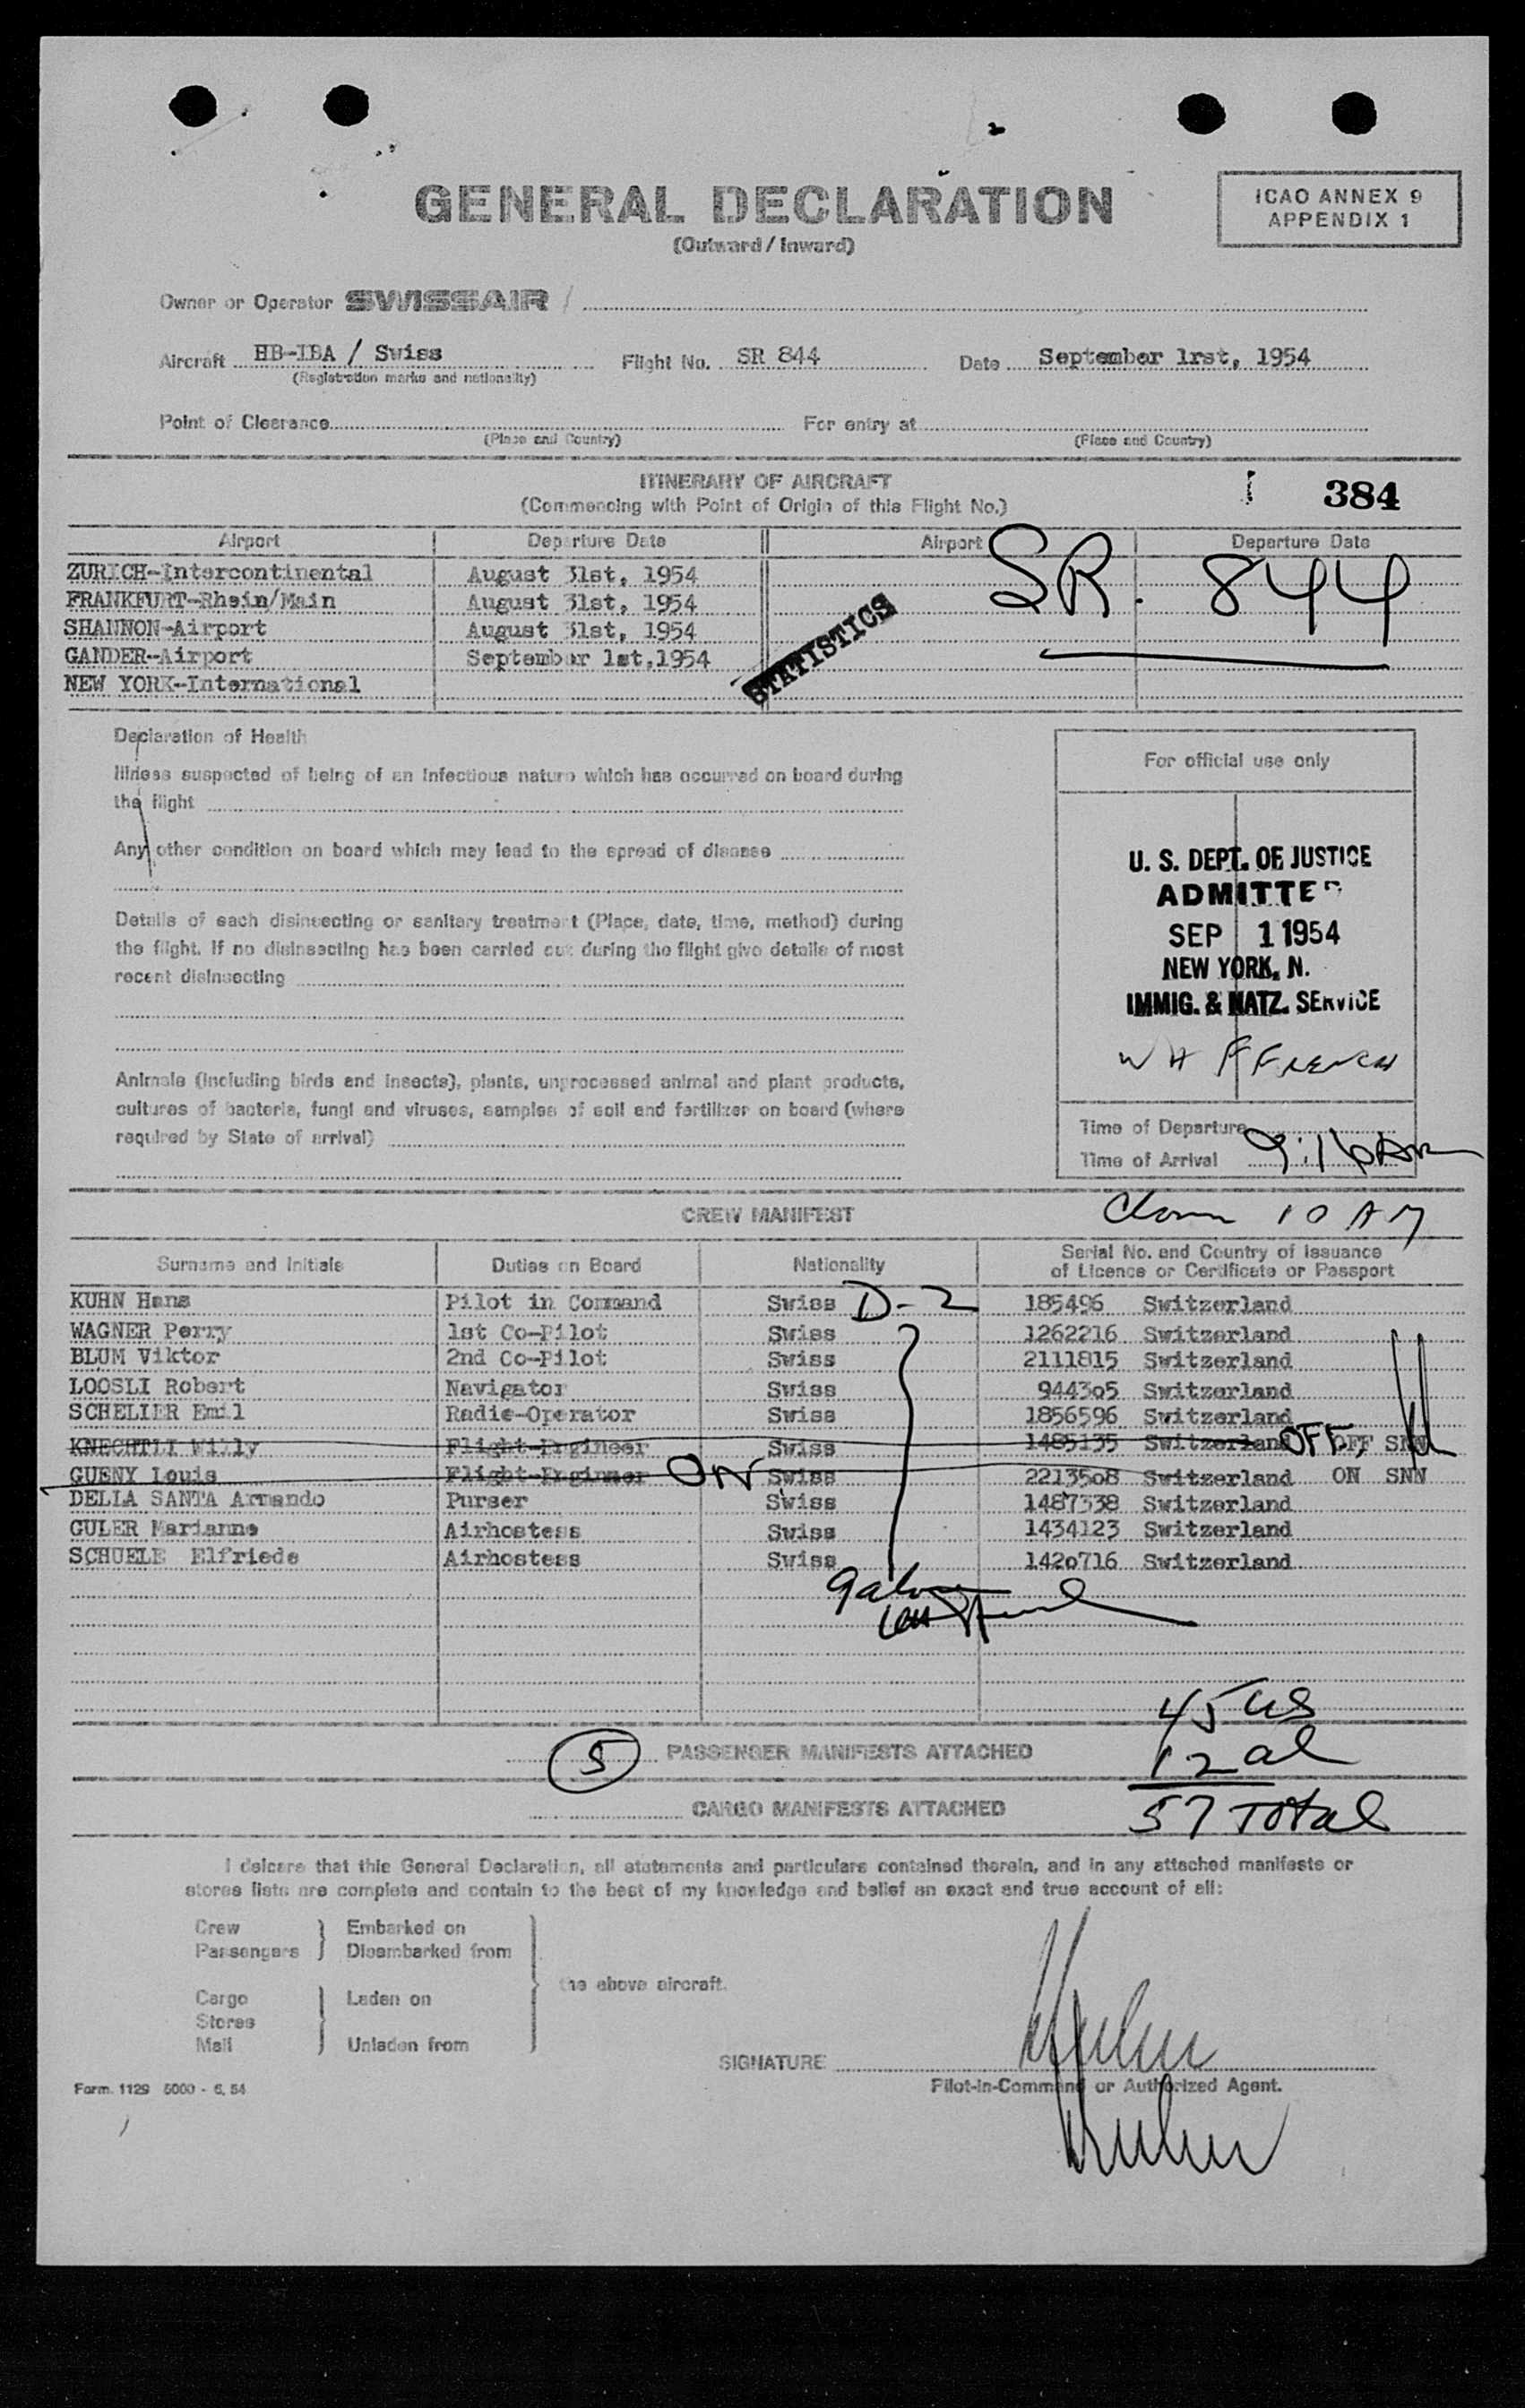 GENERAL DECLARATION
(Outward / Inward)
ICAO ANNEX 9
APPENDIX 1
Owner or Operator SWISSAIR
Aircraft HB-IBA / Swiss Flight No. SR 844 Date September 1rst, 1954
(Registration marks and nationality)
Point of Clearance For entry at
(Place and Country) (Place and Country)
ITINERARY OF AIRCRAFT
(Commencing with Point of Origin of this Flight No.)
384
Airport Departure Date Airport Departure Date
SR. 844
ZURICH-Intercontinental August 31st, 1954
FRANKFURT-Rhein/Main August 31st, 1954
SHANNON-Airport August 31st, 1954
GANDER-Airport September 1st,1954
NEW YORK-International
STATISTICS
Declaration of Health
Illness suspected of being of an infectious nature which has occurred on board during
the flight
Any other condition on board which may lead to the spread of disease
Details of each disinsecting or sanitary treatment (Place, date, time, method) during
the flight. If no disinsecting has been carried out during the flight give details of most
recent disinsecting
Animals (including birds and insects), plants, unprocessed animal and plant products,
cultures of bacteria, fungi and viruses, samples of soil and fertilizer on board (where
required by State of arrival)
For official use only
U. S. DEPT. OF JUSTICE
ADMITTED
SEP 1 1954
NEW YORK, N.
IMMIG. & NATZ. SERVICE
W H FFRENCH
Time of Departure
Time of Arrival 9:16 AM
10 AM
CREW MANIFEST
Surname and Initials Duties on Board Nationality Serial No. and Country of Issuance
of Licence or Certificate or Passport
KUHN Hans Pilot in Command Swiss D-2 185496 Switzerland
WAGNER Perry 1st Co-Pilot Swiss 1262216 Switzerland
BLUM Viktor 2nd Co-Pilot Swiss 2111815 Switzerland
LOOSLI Robert Navigator Swiss 944305 Switzerland
SCHELIER Emil Radio-Operator Swiss 1856596 Switzerland
KNECHTLI Willy Flight-Engineer Swiss 1485135 Switzerland OFF, OFF SNN
GUENY Louis Flight-Engineer ON Swiss 2213508 Switzerland ON SNN
DELLA SANTA Armando Purser Swiss 1487338 Switzerland
GULER Marianne Airhostess Swiss 1434123 Switzerland
SCHUELE Elfriede Airhostess Swiss 1420716 Switzerland
45 us
12 al
57 Total
5 PASSENGER MANIFESTS ATTACHED
CARGO MANIFESTS ATTACHED
I delcare that this General Declaration, all statements and particulars contained therein, and in any attached manifests or
stores lists are complete and contain to the best of my knowledge and belief an exact and true account of all:
Crew Embarked on
Passengers Disembarked from
the above aircraft.
Cargo Laden on
Stores
Mail Unladen from
SIGNATURE Kuhn
Pilot-in-Command or Authorized Agent.
Form. 1129 5000 - 6, 54
Kuhn